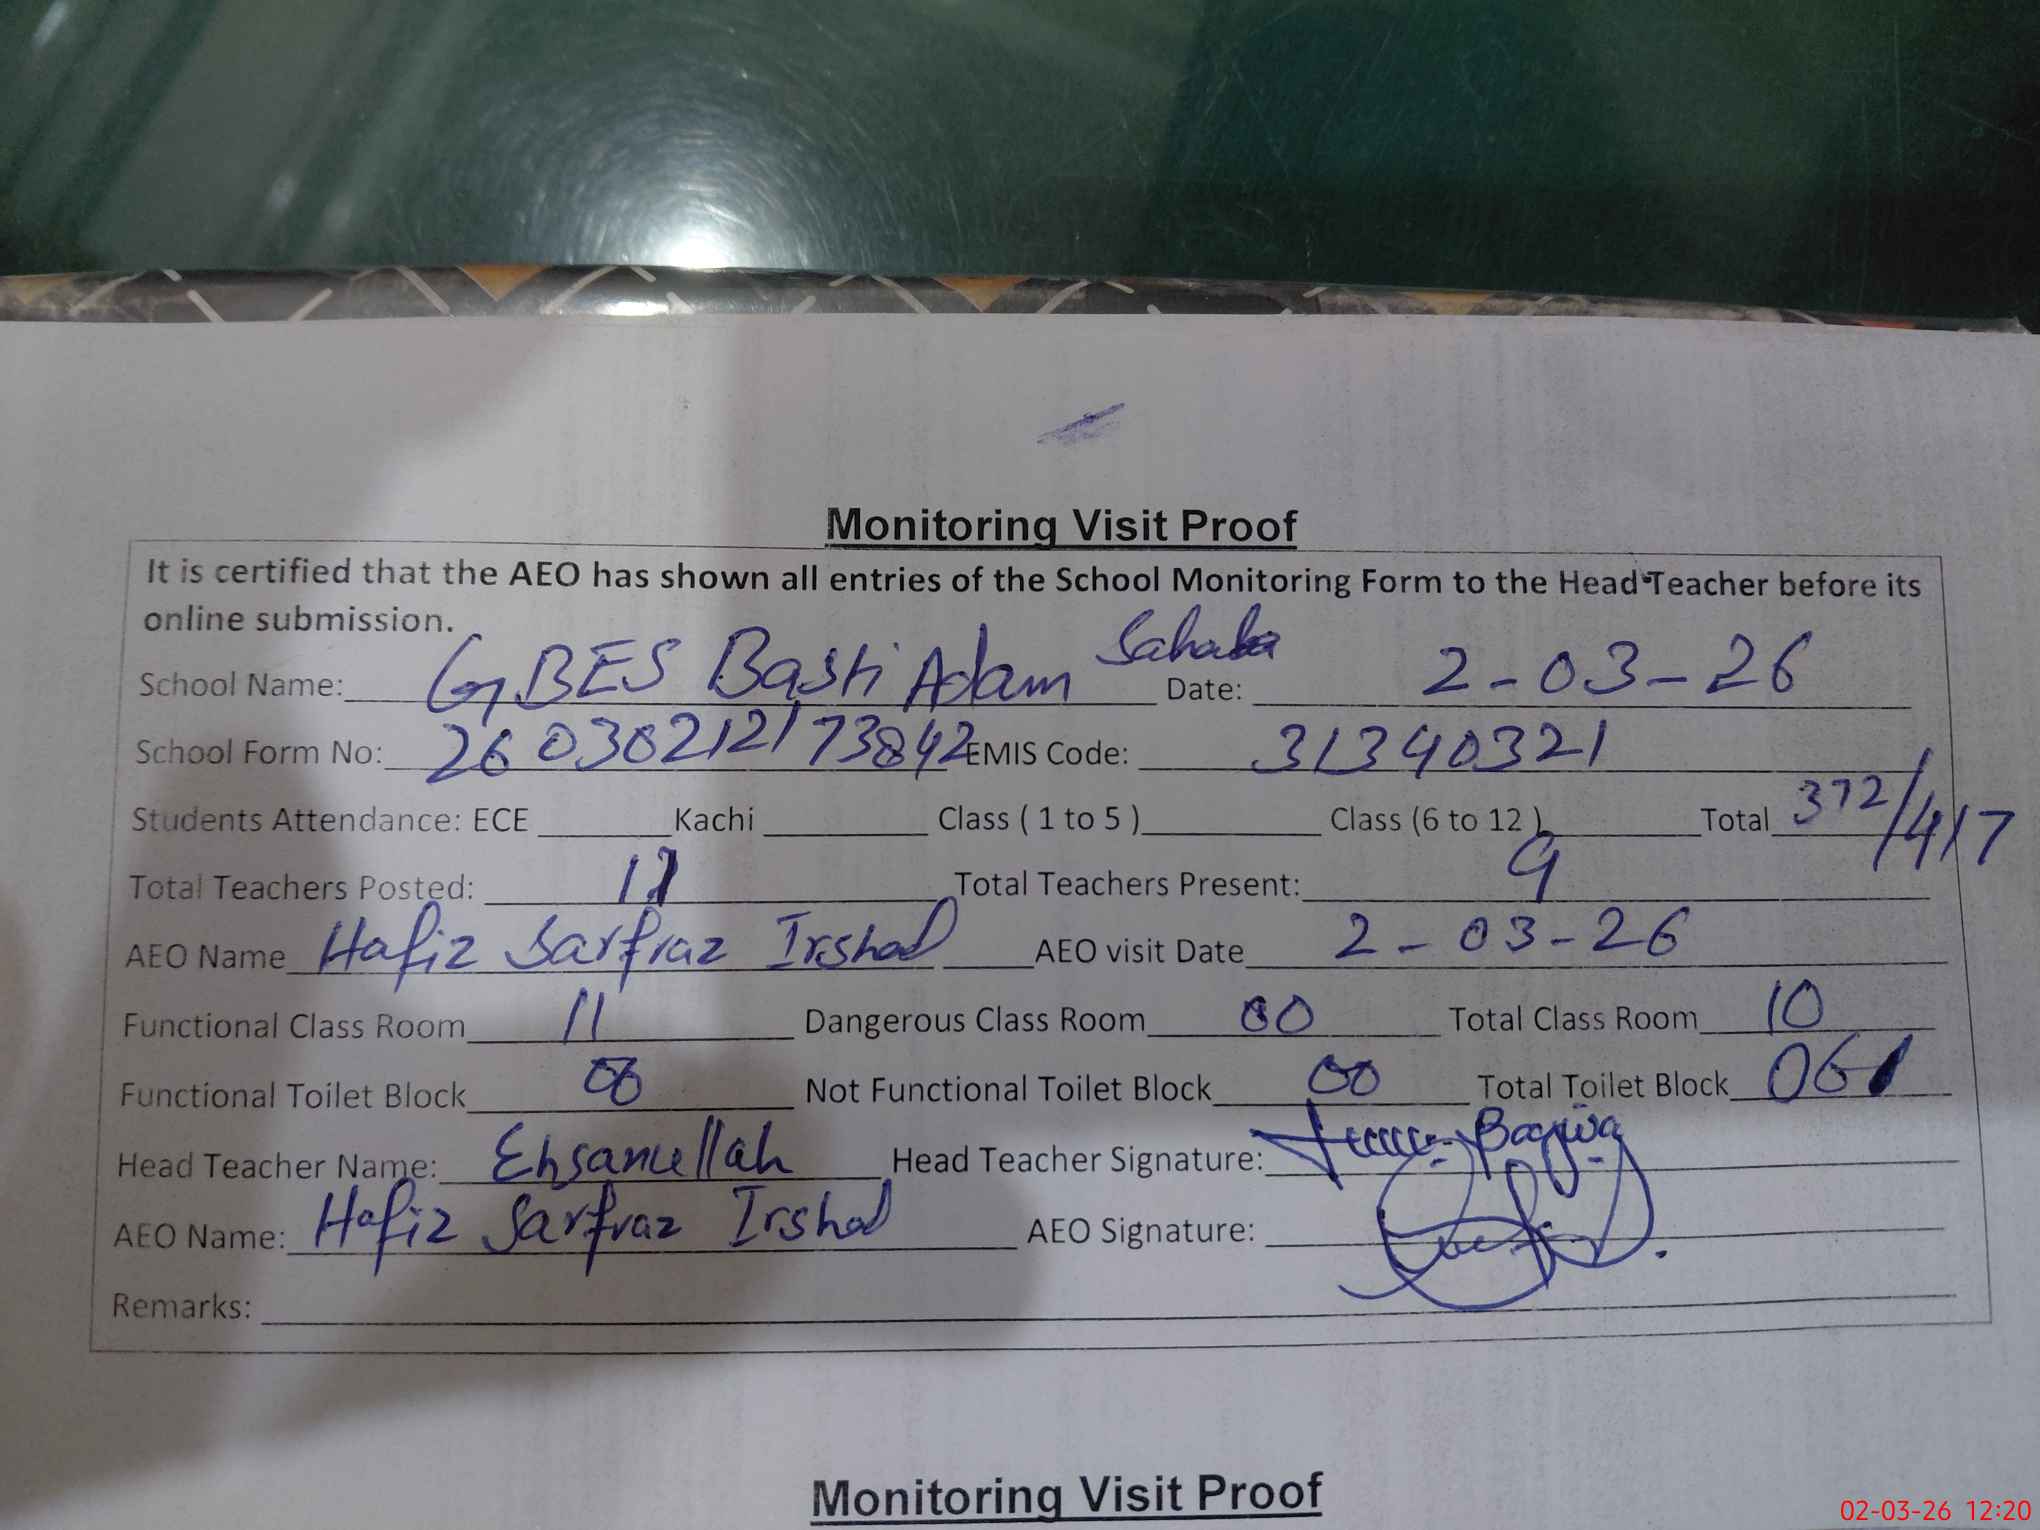 Monitoring Visit Proof
It is certified that the AEO has shown all entries of the School Monitoring Form to the Head Teacher before its
online submission.
School Name: GBES Basti Adam Sahaba Date: 2-03-26
School Form No: 26030212173842 EMIS Code: 31340321
Students Attendance: ECE Kachi Class ( 1 to 5 ) Class (6 to 12 ) Total 372/417
Total Teachers Posted: Total Teachers Present: 9
AEO Name Hafiz Sarfraz Irshad AEO visit Date 2-03-26
Functional Class Room 11 Dangerous Class Room 00 Total Class Room 10
Functional Toilet Block Not Functional Toilet Block 00 Total Toilet Block 06
Head Teacher Name: Ehsanullah Head Teacher Signature:
AEO Name: Hafiz Sarfraz Irshad AEO Signature:
Remarks:
Monitoring Visit Proof
02-03-26 12:20